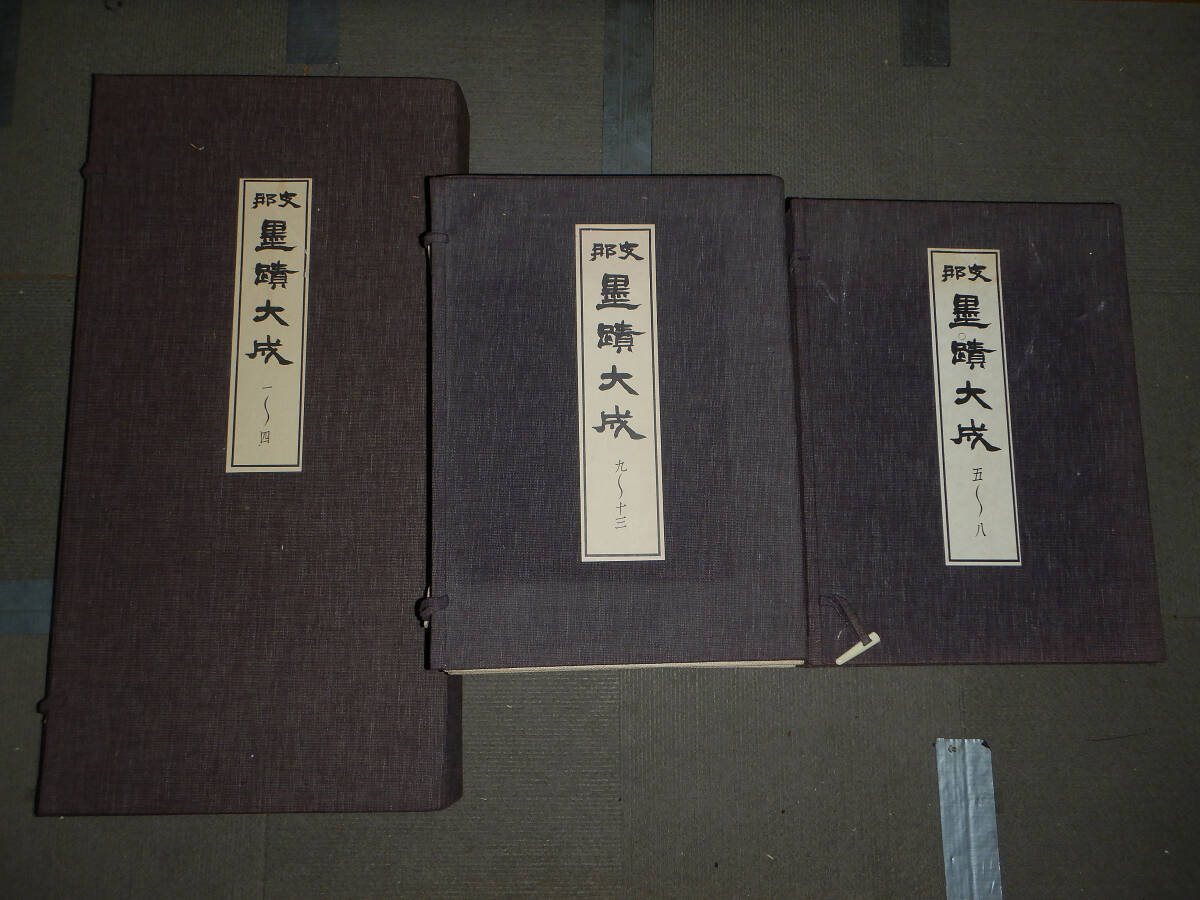 支那
墨蹟大成
一〜四
支那
墨蹟大成
九〜十三
支那
墨蹟大成
五〜八